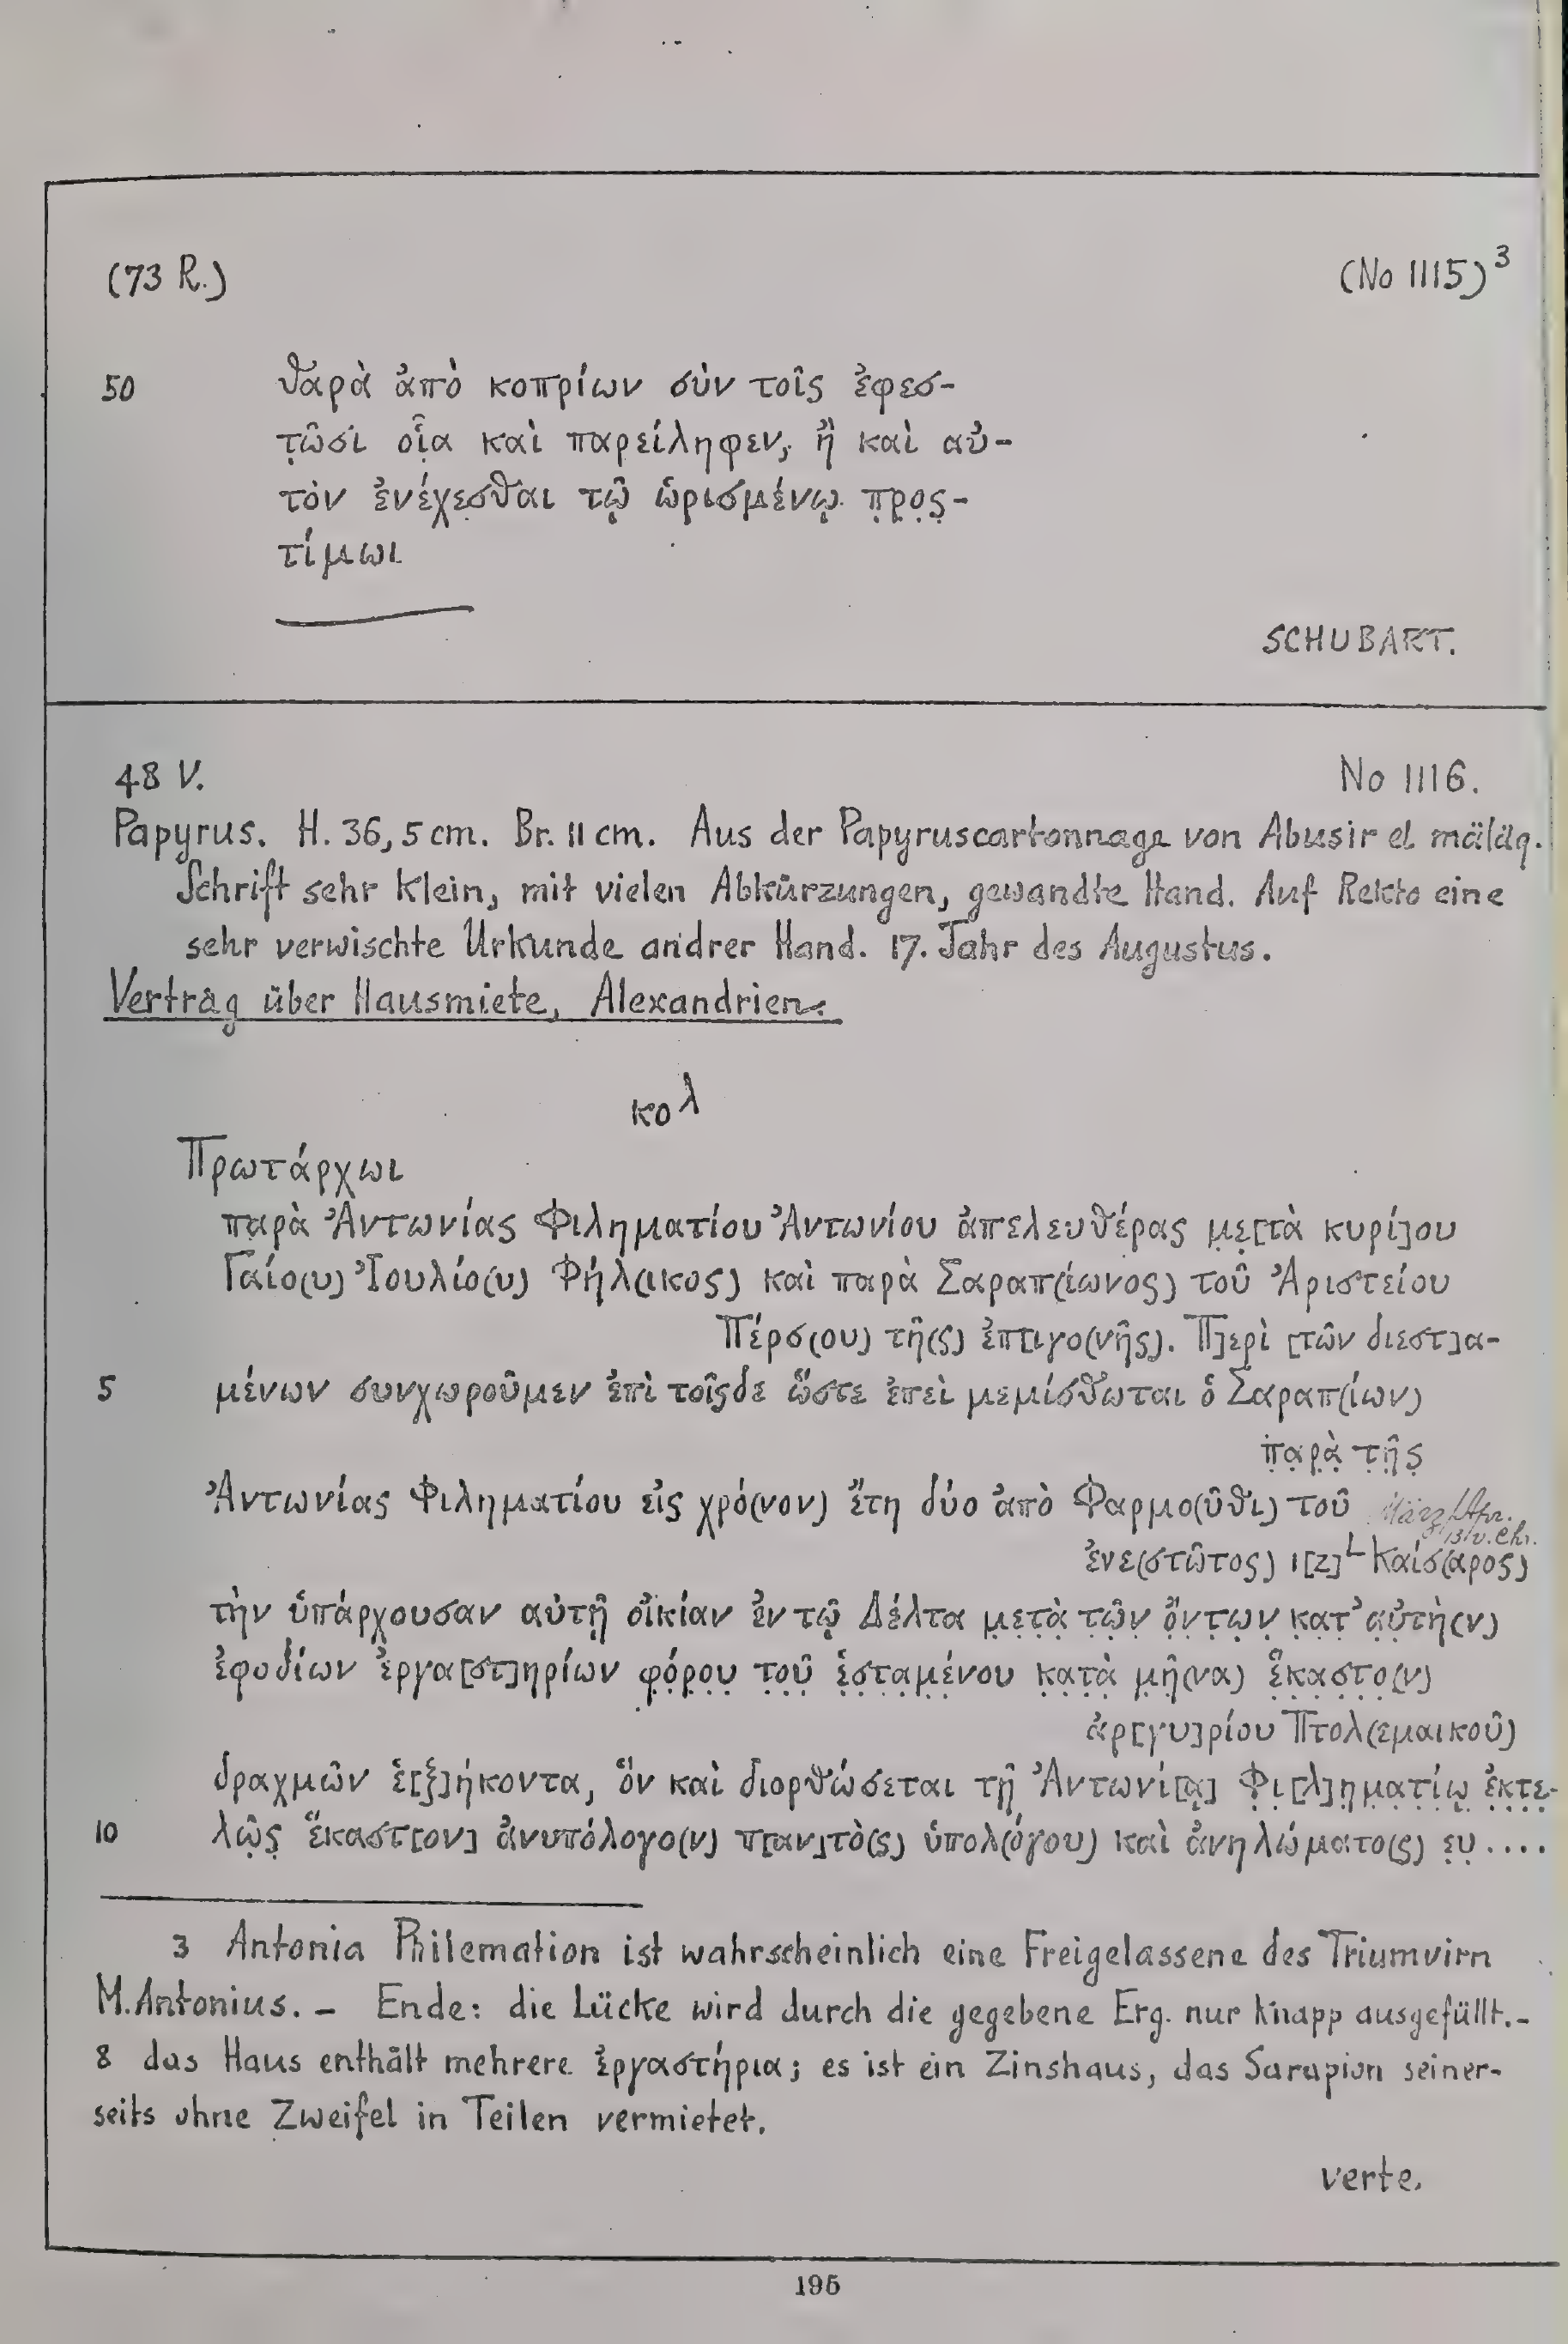 (73 R.) (No 1115)³
50 θαρὰ ἀπὸ κοπρίων σὺν τοῖς ἐφεσ-
τ̣ῶσι οἷ̣α καὶ παρείληφεν, ἢ καὶ αὐ-
τὸν ἐνέχε̣σθαι τῷ ὡρισμένῳ π̣ρ̣ο̣ς̣-
τίμωι
SCHUBART.
48 V. No 1116.
Papyrus. H. 36,5 cm. Br. 11 cm. Aus der Papyruscartonnage von Abusir el mäläq.
Schrift sehr klein, mit vielen Abkürzungen, gewandte Hand. Auf Rekto eine
sehr verwischte Urkunde andrer Hand. 17. Jahr des Augustus.
Vertrag über Hausmiete, Alexandrien.
κολ
Πρωτάρχωι
παρὰ Ἀντωνίας Φιληματίου Ἀντωνίου ἀπελευθέρας μ̣ε̣[τὰ κυρί]ου
Γαίο(υ) Ἰουλίο(υ) Φήλ(ικος) καὶ παρὰ Σαραπ(ίωνος) τοῦ Ἀριστείου
Πέρσ(ου) τῆ(ς) ἐπ[ιγο(νῆς). Π]ερὶ [τῶν διεστ]α-
5 μένων συνχωροῦμεν ἐπὶ τοῖσδε ὥστε ἐπεὶ μεμίσθωται ὁ Σαραπ(ίων)
π̣α̣ρ̣ὰ̣ τ̣ῆ̣ς̣
Ἀντωνίας Φιληματίου εἰς χρό(νον) ἔτη δύο ἀπὸ Φαρμο(ῦθι) τοῦ März/Apr.
13 v. Chr.
ἐνε(στῶτος) ι[ζ]L Καίσ(αρος)
τὴν ὑπάρχουσαν αὐτῇ οἰκίαν ἐν τῷ Δέλτα μ̣ε̣τ̣ὰ̣ τ̣ῶ̣ν̣ ὄ̣ν̣τ̣ω̣ν̣ κ̣α̣τ̣’ α̣ὐ̣τ̣ὴ̣(ν)
ἐφοδίων ἐργα[στ]ηρίων φ̣ό̣ρ̣ο̣υ̣ τ̣ο̣ῦ̣ ἑ̣σ̣τ̣α̣μ̣έ̣ν̣ο̣υ κ̣α̣τ̣ὰ̣ μ̣ῆ̣(να) ἕ̣κ̣α̣σ̣τ̣ο̣(ν)
ἀρ[γυ]ρίου Πτολ(εμαικοῦ)
δραχμῶν ἑ[ξ]ήκοντα, ὃν καὶ διορθώσεται τῇ Ἀντωνί[ᾳ] Φ̣ι̣[λ]η̣μ̣α̣τ̣ί̣ῳ̣ ἐ̣κ̣τ̣ε̣-
10 λῶ̣ς̣ ἕκαστ[ον] ἀνυπόλογο(ν) π[αν]τὸ(ς) ὑπολ(όγου) καὶ ἀνηλώματο(ς) ε̣υ̣ ....
3 Antonia Philemation ist wahrscheinlich eine Freigelassene des Triumvirn
M. Antonius. – Ende: die Lücke wird durch die gegebene Erg. nur knapp ausgefüllt. –
8 das Haus enthält mehrere ἐργαστήρια; es ist ein Zinshaus, das Sarapion seiner-
seits ohne Zweifel in Teilen vermietet.
verte.
195